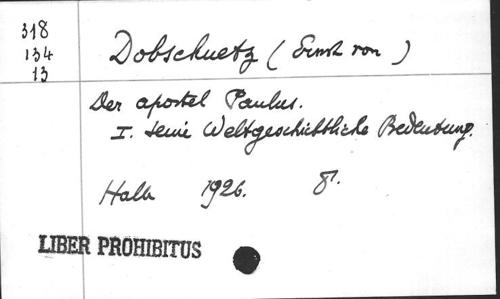 318
134
13
Dobschuetz (Ernst von)
Der apostel Paulus.
I. seine Weltgeschichtliche Bedeutung.
Halle 1926. 8°.
LIBER PROHIBITUS